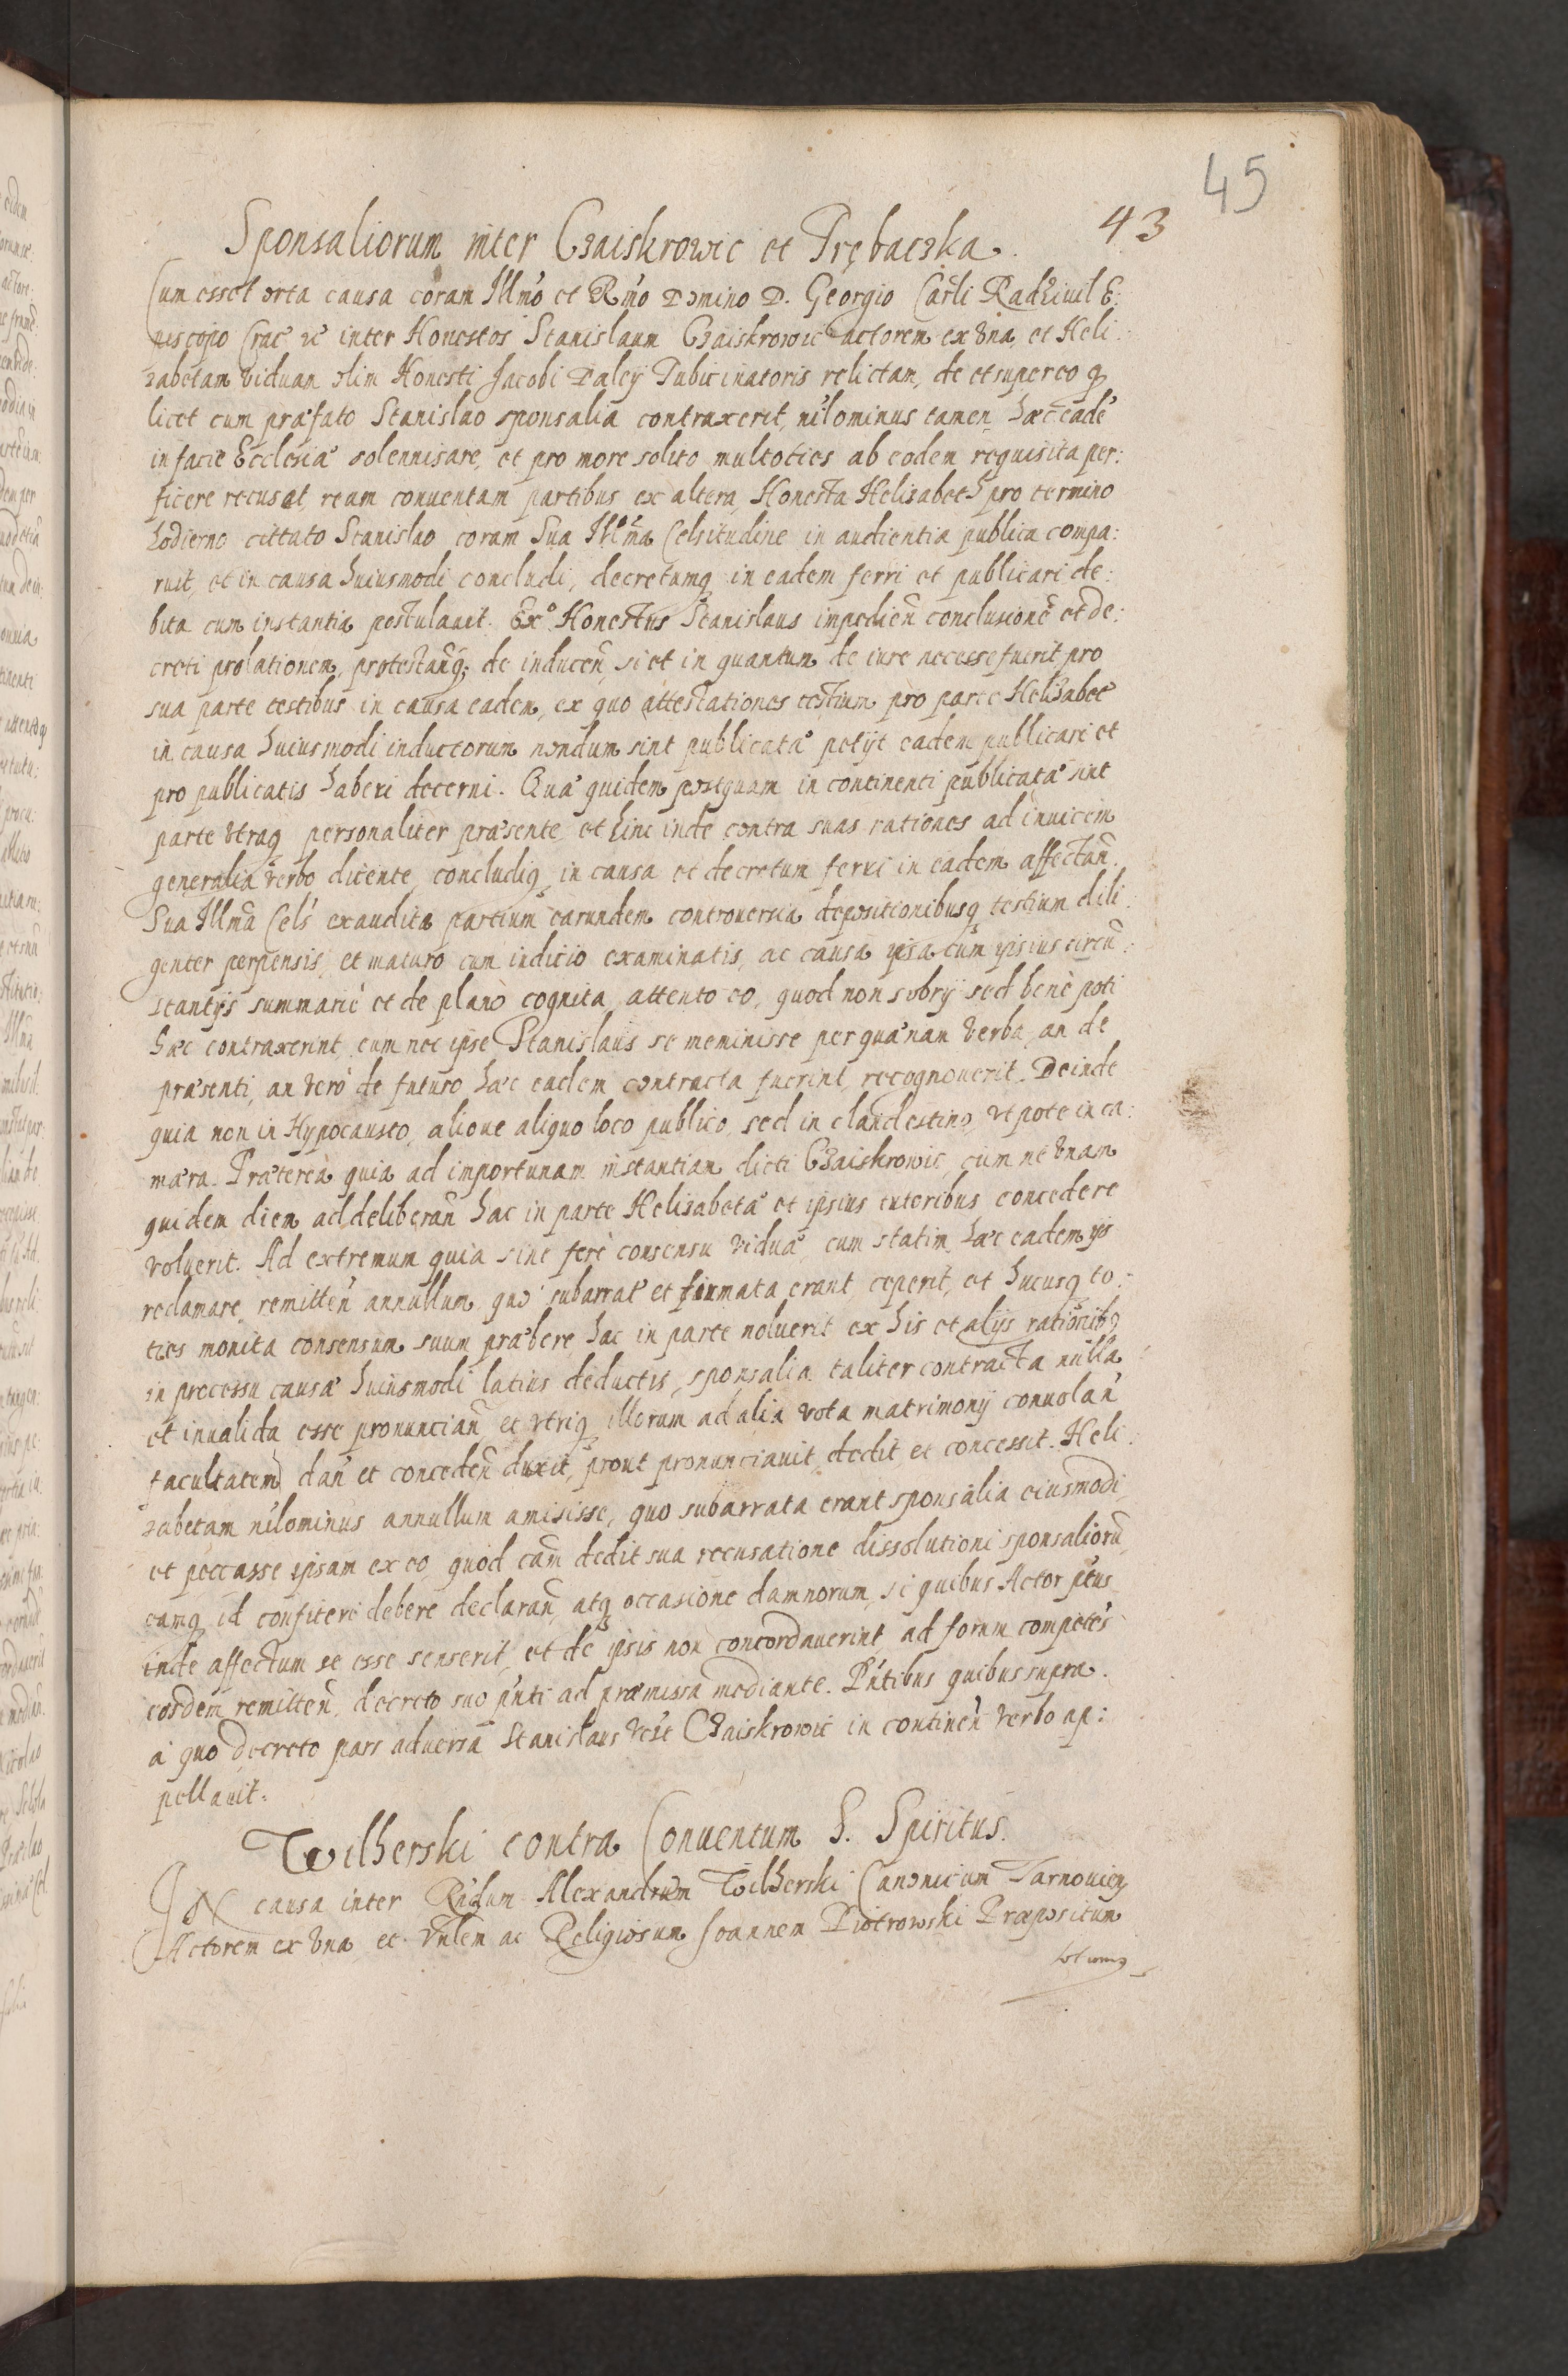 45
43
Sponsaliorum inter Czaiskrowic et Trębaczka.
Cum esset orta causa coram Illm̃o et Rm̃o Domino D. Georgio Carđli Radziuil E:
piscopo Crac̄ ꝛc̄ inter Honestos Stanislaum Czaiskrowic actorem ex vna, et Heli:
zabetam viduam olim Honesti Jacobi Daleÿ Tubicinatoris relictam, de et super eo q̨
licet cum præfato Stanislao sponsalia contraxerit, nĩlominus tamen hæc eadē
in facie Ecclesiæ solennisare, et pro more solito multoties ab eodem requisita per:
ficere recusat, ream conuentam partibus ex altera, Honesta Helizabeth pro termino
hodierno cittato Stanislao coram Sua Illm̃a Celsitudine in audientia publica compa:
ruit, et in causa huiusmodi concludi, decretumq̨ in eadem ferri et publicari de:
bita cum instantia postulauit. Exº Honestus Stanislaus impedieñ conclusionē et de:
creti prolationem, protestañq̨ de induceñ si et in quantum de iure necesse fuerit pro
sua parte testibus in causa eadem, ex quo attestationes testium pro parte Helizabetæ
in causa huiusmodi inductorum nondum sint publicatæ petÿt eadem publicari et
pro publicatis haberi decerni. Quæ quidem postquam in continenti publicatæ sint
parte vtraq̨ personaliter præsente, et hinc inde contra suas rationes ad inuicem
generalia verbo dicente, concludiq̨ in causa et decretum ferri in eadem affectañ.
Sua Illm̃a Celš exaudita partium earundem controuersia, depositionibusq̨ testium dili:
genter perpensis, et maturo cum iudicio examinatis, ac causa ipsa cum ipsius circū:
stantÿs summariè et de plano cognita, attento eo, quod non sobrÿ sed benè poti
hæc contraxerint, cum nec ipse Stanislaus se meminisse per quænam verba, an de
præsenti, an verò de futuro hæc eadem contracta fuerint, recognouerit. Deinde
quia non in Hypocausto, alioue aliquo loco publico, sed in clandestino, vt pote in ca:
mæra. Prætereà quia ad importunam instantiam dicti Czaiskrowic, cùm ne vnam
quidem diem ad deliberañ hac in parte Helizabetæ et ipsius tutoribus concedere
voluerit. Ad extremum quia sine ferè consensu viduæ, cum statim hæc eadem ÿs
reclamare, remitteñ annullum quo subarratæ et firmata erant, ceperit, et hucusq̨ to:
ties monita consensum suum præbere hac in parte noluerit ex his et alÿs rationibꝰ
in processu causæ huiusmodi latius deductis, sponsalia taliter contracta nulla
et inualida esse pronunciañ et vtriq̨ illorum ad alia vota matrimonÿ conuolañ
facultatem dañ et concedeñ duxit, prout pronunciauit, dedit, et concessit. Heli:
zabetam nĩlominus annullum amisisse, quo subarrata erant sponsalia eiusmodi,
et peccasse ipsam ex eo, quod cañ dedit sua recusatione dissolutioni sponsaliorū,
eamq̨ id confiteri debere declarañ, atq̨ occasione damnorum, si quibus Actor p̃tus
inde affectum se esse senserit, et de ipsis non concordauerint ad forum competẽs
eosdem remitteñ, decreto suo p̃nti ad præmissa mediante. Pñtibus quibus supra.
à quo decreto pars aduersa Stanislaus Czaiskrowic in contineñ verbo ap:
pellauit.
Wilherski contra Conuentum S. Spiritus.
IN causa inter Rñdum Alexandrum Wilherski Canonicum Tarnouieñ
Actorem ex vna et Vñlem ac Religiosum Joannem Piotrowski Præpositum